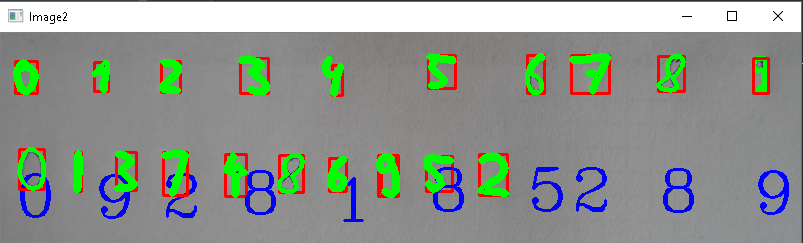 Image2
0 1 2 3 4 5 6 7 8 9
0 1 3 7 4 8 6 9 5 2
0 9 2 8 1 8 5 2 8 9